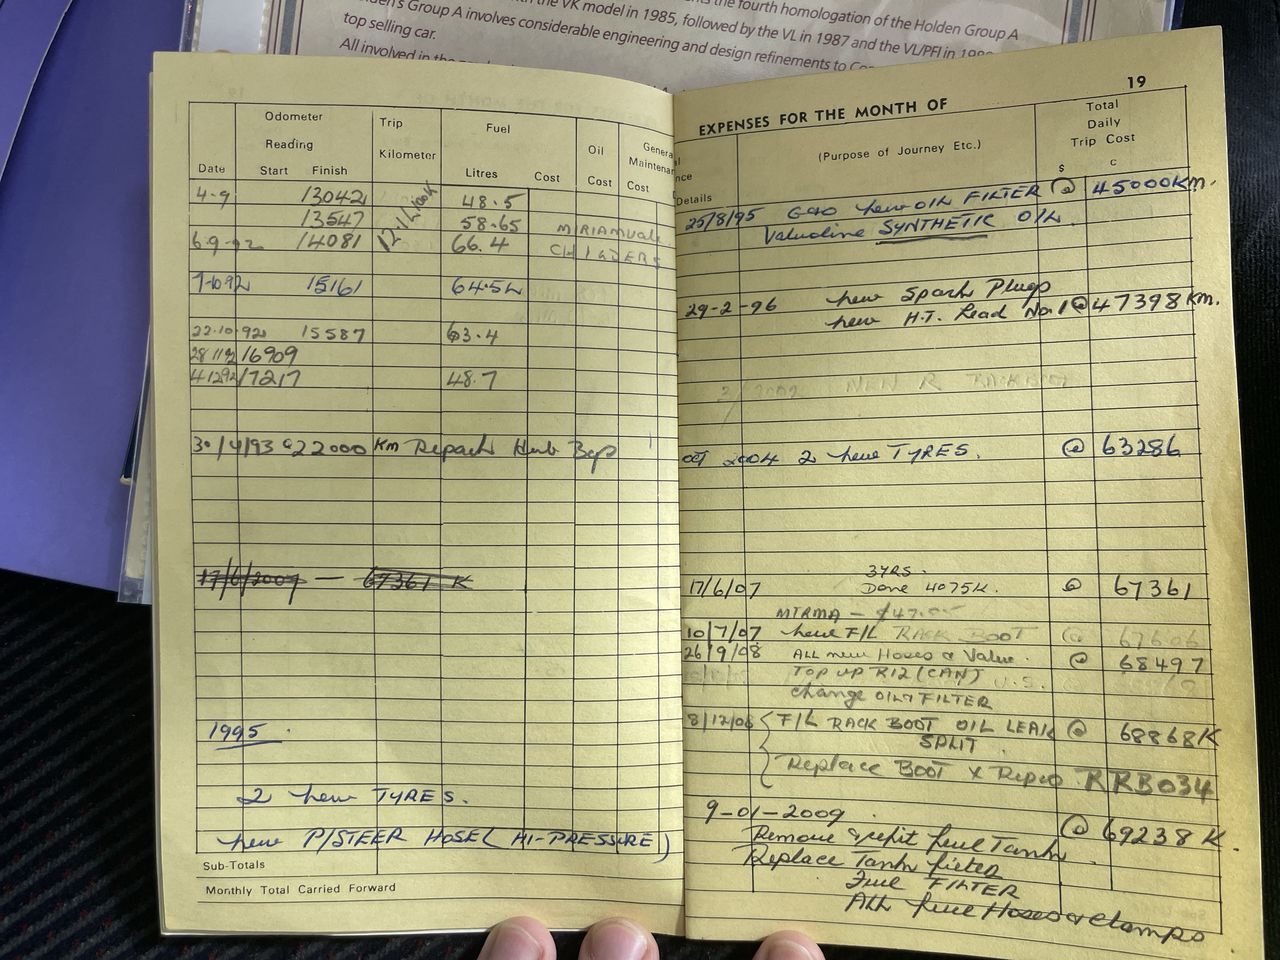 the fourth homologation of the Holden Group A
the VK model in 1985, followed by the VL in 1987 and the VL/PFI in
Group A involves considerable engineering and design refinements to
top selling car.
All involved in the
Odometer Reading
Trip Kilometer
Fuel
Oil Cost
Date Start Finish Litres Cost Cost
4-9 13042 48.5
13547 58.65 MIRIAMVALE
6.9.92 14081 66.4 CHILDERS
12.1L/100K
7-10 92 15161 64.52
22.10.92 15587 63.4
28 11 92 16909
4 12 92 17217 48.7
30/4/93 @ 22000 Km Repack Hub
17/6/2007 — 67361 K
1995
2 New TYRES.
New P/STEER HOSE (HI-PRESSURE)
Sub-Totals
Monthly Total Carried Forward
19
EXPENSES FOR THE MONTH OF
Details
(Purpose of Journey Etc.)
Total Daily Trip Cost
$ c
25/8/95 New OIL FILTER @ 45000Km.
Valvoline SYNTHETIC OIL
29-2-96 New Spark Plugs
New H.T. Lead No.1 @ 47398 Km.
2/2002 NEW R RACK BOOT
OCT 2004 2 New TYRES. @ 63286
3YRS.
17/6/07 Done 4075K. @ 67361
MTRMA
10/7/07 New F/L RACK BOOT @ 67606
26/9/08 ALL new Hoses & Valve. @ 68497
TOP UP R12 (CAN)
Change OIL & FILTER
8/12/08 F/L RACK BOOT OIL LEAK @ 68868K
SPLIT
Replace BOOT RRB034
9-01-2009 @ 69238 K.
Remove & refit fuel Tank
Replace Tank filter
Fuel FILTER
ALL fuel Hoses & Clamps